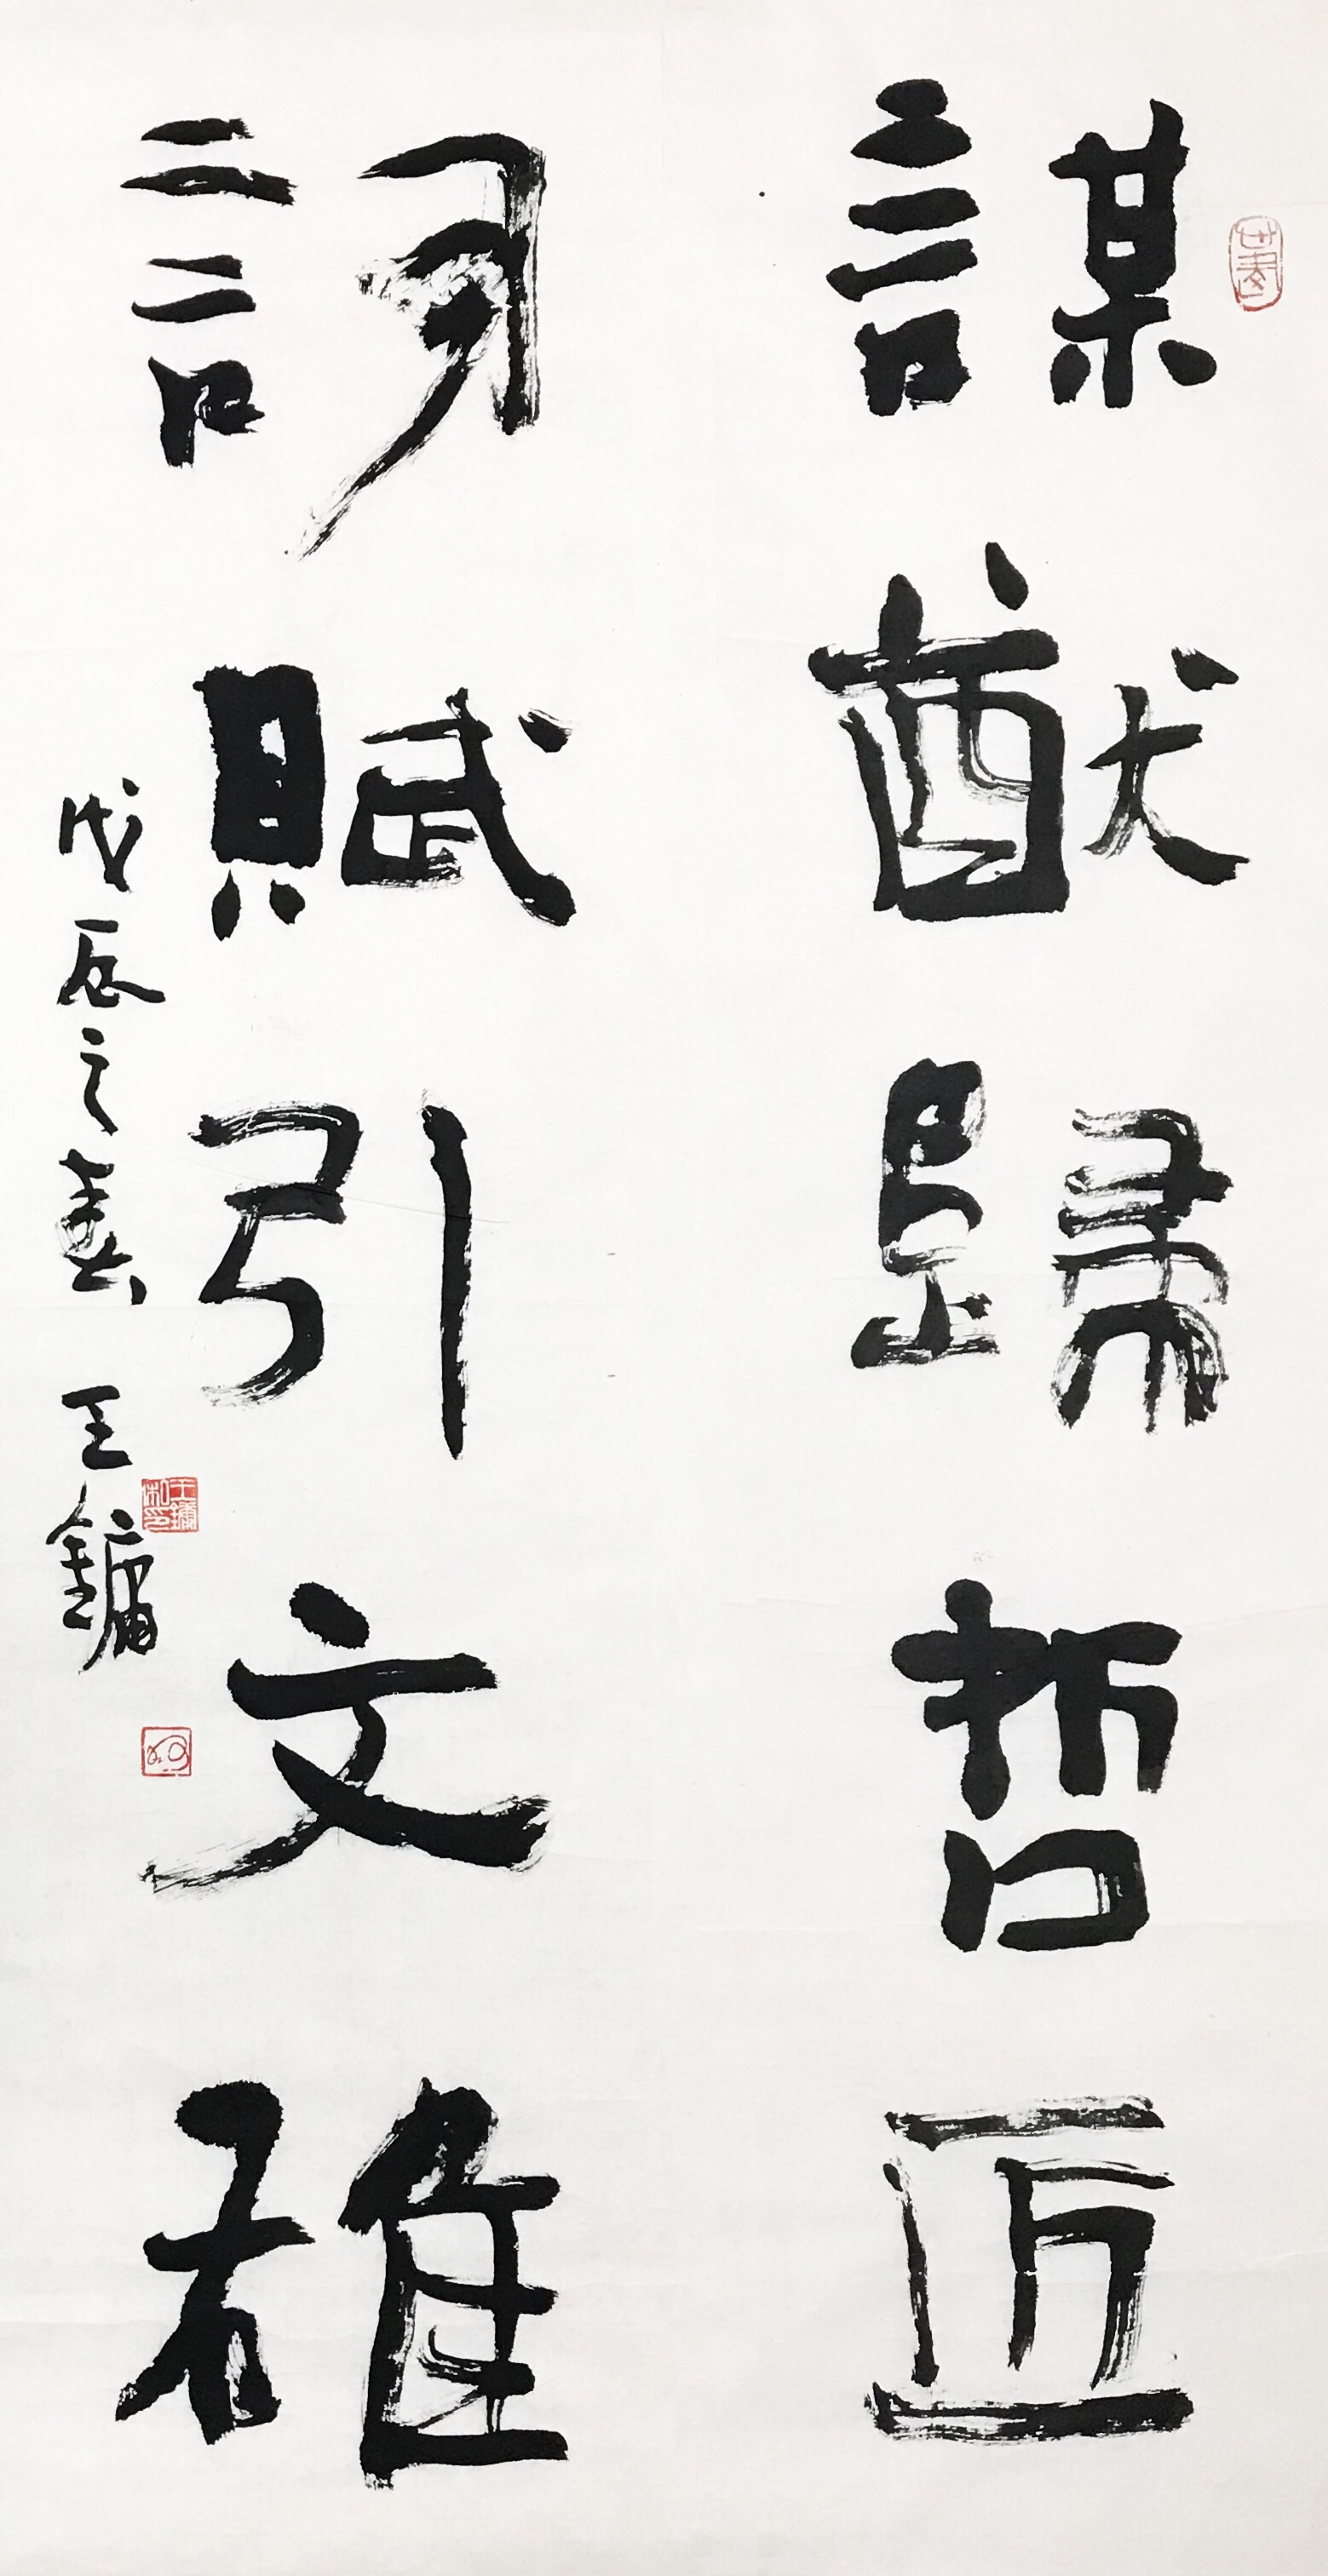 謀猷歸哲匠
詞賦引文雄
戊辰之春 王鏞
王鏞私印